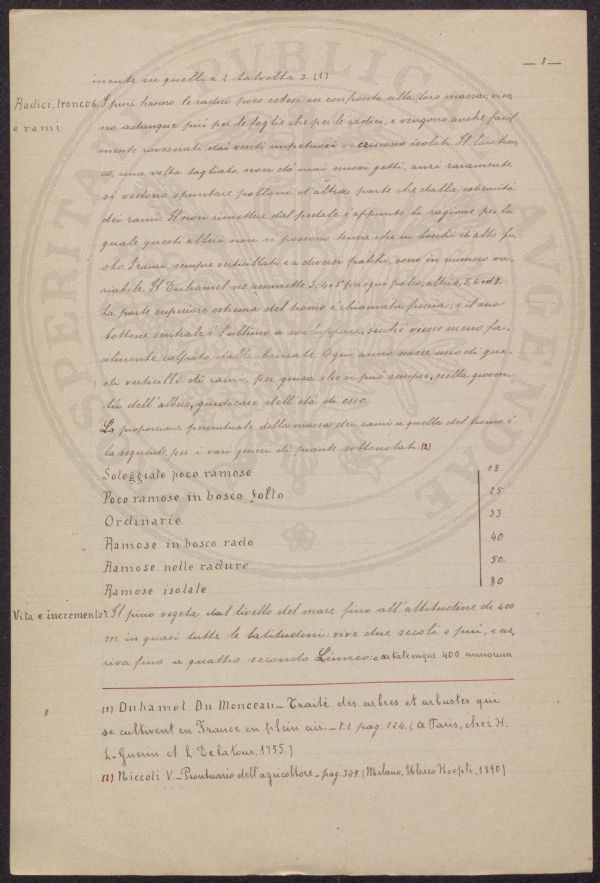 — 8 —
mente su quelli a 2 talvolta 3. (1)
Radici, tronco
e rami
6. I pini hanno le radici poco estese in confronto alla loro massa; viva
no adunque più per le foglie che per le radici, e vengono anche facil
mente rovesciati dai venti impetuosi se crescono isolati. Il loro tron
co, una volta tagliato, non dà mai nuovi getti, anzi raramente
si vedono spuntare polloni d'altra parte che dalla estremità
dei rami. Il non rimettere dal pedale è appunto la ragione per la
quale questi alberi non si possono tenere che in boschi di alto fu
sto. I rami, sempre verticillati e a diversi palchi, sono in numero va
riabile. Il Duhamel ne ammette 3, 4 o 5 per ogni palco; altri 4, 5, 6 ed 8.
La parte superiore estrema del tronco è chiamata freccia; e il suo
bottone centrale è l'ultimo a sviluppare, sicchè viene meno fa-
cilmente colpito dalle brinate. Ogni anno nasce uno di que-
sti verticilli di rami, per guisa che si può sempre, nella gioven-
tù dell'albero, giudicare dell'età di esso.
La proporzione percentuale della massa dei rami a quella del tronco è
la seguente per i vari generi di piante sottonotati: (2)
Soleggiate poco ramose 18
Poco ramose in bosco folto 25
Ordinarie 33
Ramose in bosco rado 40
Ramose nelle radure 50
Ramose isolate 80
Vita e incremento
7. Il pino vegeta dal livello del mare fino all'altitudine di 400
m. in quasi tutte le latitudini: vive due secoli e più, e ar,
riva fino a quattro secondo Linneo: e aetatemque 400 annorum
(1) Duhamel Du Monceau — Traité des arbres et arbustes qui
se cultivent en France en plein air. — T. 2 pag. 124. (à Paris, chez H.
L. Guerin et L. Delatour, 1755.)
(2) Niccoli V. — Prontuario dell'agricoltore — pag. 349. (Milano, Ulrico Hoepli, 1890)
PROSPERITATI PVBLICAE AVGENDAE